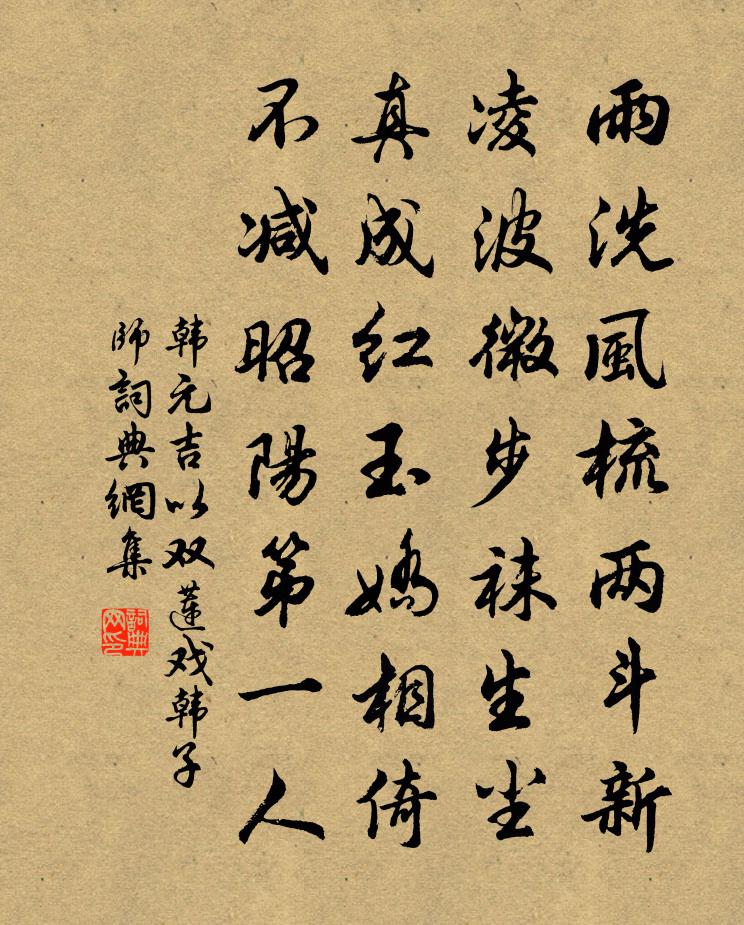 雨洗風梳两斗新
凌波微步袜生尘
真成红玉嬌相倚
不减昭陽第一人
韩元吉以双蓮戏韩子
師詞典網集
詞典网印